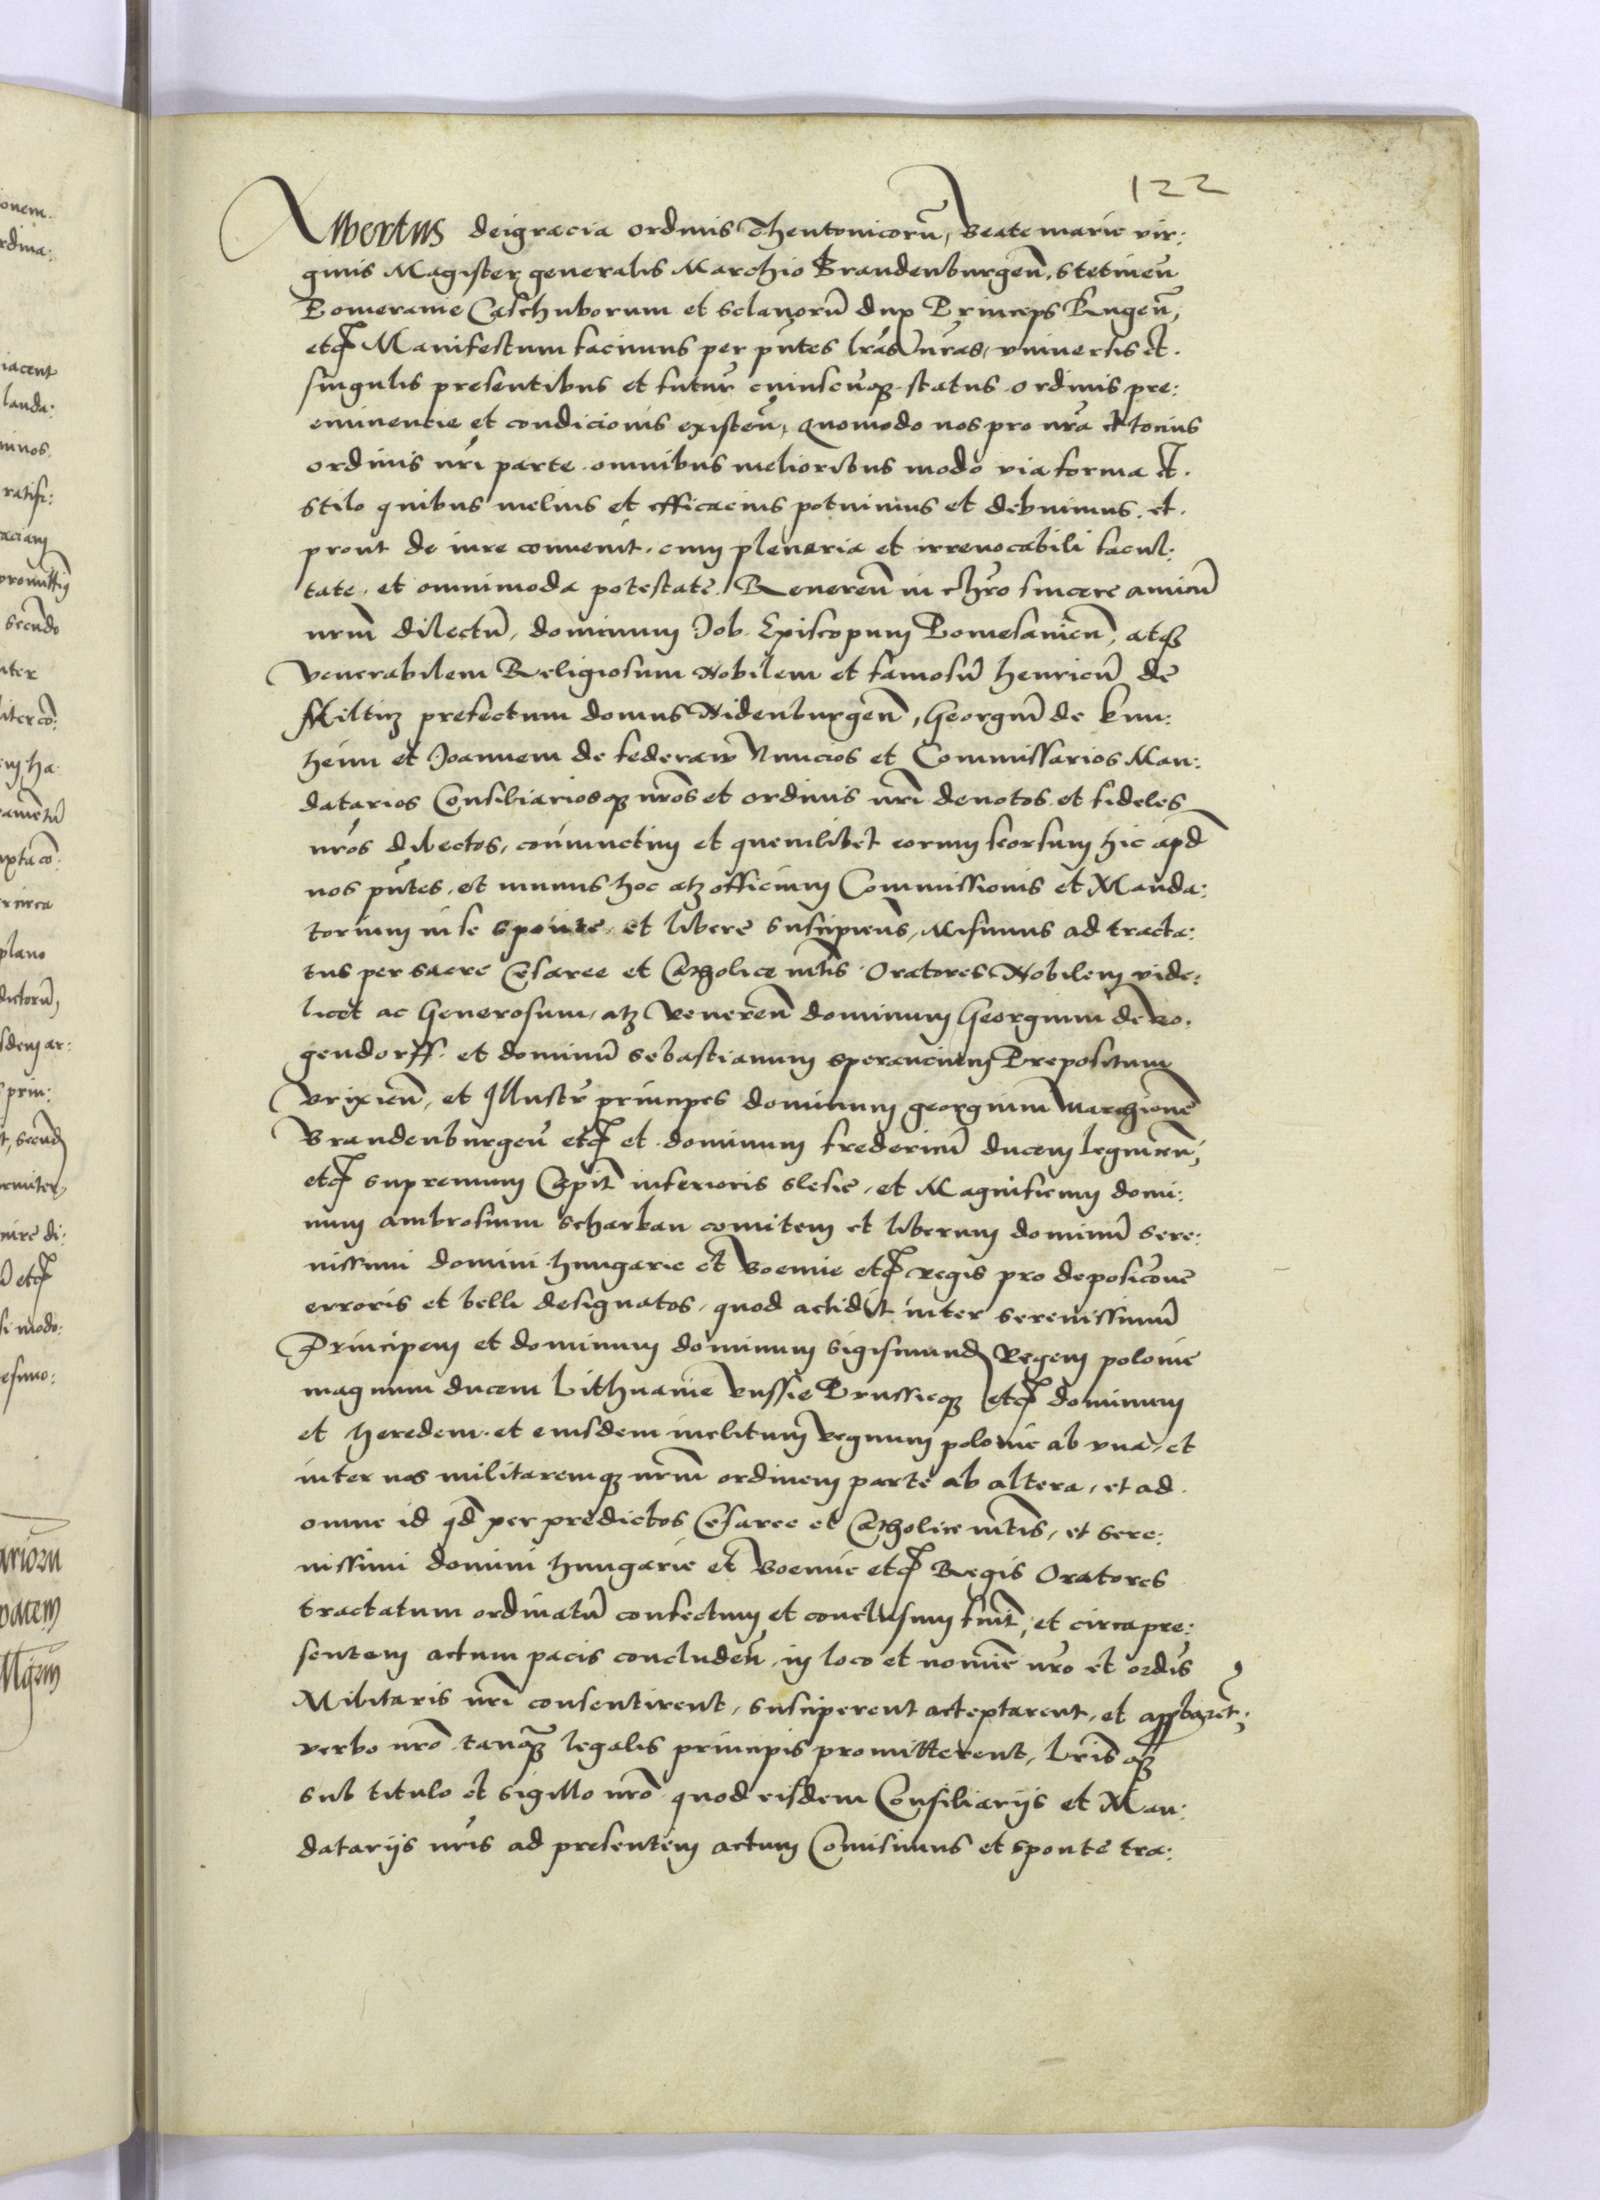 122
Albertus deigracia ordinis Theutonicorũ, Beate marie vir:
ginis Magister generalis Marchio Brandenburgeñ, Stetineñ
Pomeranie Caschuborum et sclavorũ dux Princeps Rugeñ,
etc̃ Manifestum facimus per pñtes lrãs nrãs, vniversis et.
singulis presentibus et futur̃ cuiuscũqz status ordinis pre:
eminentie et condicionis existeñ, quomodo nos pro nrã et tocius
ordinis nrĩ parte omnibus melioribus modo via forma et.
stilo quibus melius et efficacius potuimus et debuimus. et.
prout de iure convenit. cum plenaria et irrevocabili facul:
tate. et omnimoda potestate. Revereñ in chrõ sincere amicũ
nrm̃ dilectũ, dominum Job. Episcopum Pomesanieñ, atqz
venerabilem Religiosum Nobilem et famosũ henricũ de
Miltitz prefectum domus Nidenburgeñ, Georgiũ de kun:
heim et Joannem de federaw Nuncios et Commissarios Man:
datarios Consiliariosqz nrõs et ordinis nrĩ devotos et fideles
nrõs dilectos, coniunctim et quemlibet eorum seorsum hic apd̃
nos pñtes. et munus hoc atqz officium Commissionis et Manda:
torium in se sponte. et libere suscipiens, Misimus ad tracta:
tus per sacre Cesaree et Catholice mtĩs Oratores Nobilem vide:
licet ac Generosum, atqz Venereñ dominum Georgium de Ro:
gendorff. et dominũ Sebastianum sperancium Prepositum
Brixieñ, et Illustr̃ principes dominum georgium Marchionẽ
Brandenburgeñ etc̃ et dominum fredericũ ducem legnicen̄,
etc̃ supremum Capit̃ inferioris slesie, et Magnificum domi:
num ambrosium scharkan comitem et liberum dominũ sere:
nissimi domini hungarie et Boemie etc̃ regis pro deposicõne
erroris et belli designatos, quod accidit inter serenissimũ
Principem et dominum dominum sigismund̃ Regem polonie
magnum ducem Lithuanie russie Prussieqz etc̃ dominum
et heredem. et eiusdem inclitum regnum polonie ab vna, et
inter nos militaremqz nrm̃ ordinem parte ab altera, et ad.
omne id qd̃ per predictos Cesaree et Catholice mtĩs, et sere:
nissimi domini hungarie et Boemie etc̃ Regis Oratores
tractatum ordinatũ confectum et conclusum fuit, et circa pre:
sentem actum pacis concludeñ, in loco et nomine nrõ et ordĩs
Militaris nrĩ consentirent, susciperent acceptarent, et approbarẽt,
verbo nrõ tanqz̃ legalis principis promitterent, Lrĩs qz
sub titulo et sigillo nrõ quod eisdem Consiliariis et Man:
datariis nrĩs ad presentem actum Comisimus et sponte tra: